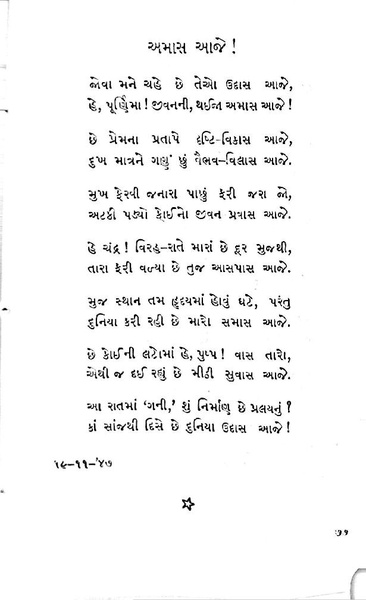 અમાસ આજે !
જોવા મને ચહે છે તેઓ ઉદાસ આજે,
હે, પૂર્ણિમા ! જીવનની, થઈજા અમાસ આજે !
છે પ્રેમના પ્રતાપે દૃષ્ટિ-વિકાસ આજે,
દુખ માત્રને ગણું છું વૈભવ-વિલાસ આજે.
મુખ ફેરવી જનારા પાછું ફરી જરા જો,
અટકી પડ્યો કોઈનો જીવન પ્રવાસ આજે.
હે ચંદ્ર ! વિરહ-રાતે મારાં છે દૂર મુજથી,
તારા ફરી વળ્યા છે તુજ આસપાસ આજે.
મુજ સ્થાન તમ હૃદયમાં હોવું ઘટે, પરંતુ
દુનિયા કરી રહી છે મારો સમાસ આજે.
છે કોઈની લટોમાં હે, પુષ્પ ! વાસ તારો,
એથી જ દઈ રહ્યું છે મીઠી સુવાસ આજે.
આ રાતમાં ‘ગની,’ શું નિર્માણ છે પ્રલયનું ?
કાં સાંજથી દિસે છે દુનિયા ઉદાસ આજે !
૧૯-૧૧-’૪૭
૭૧